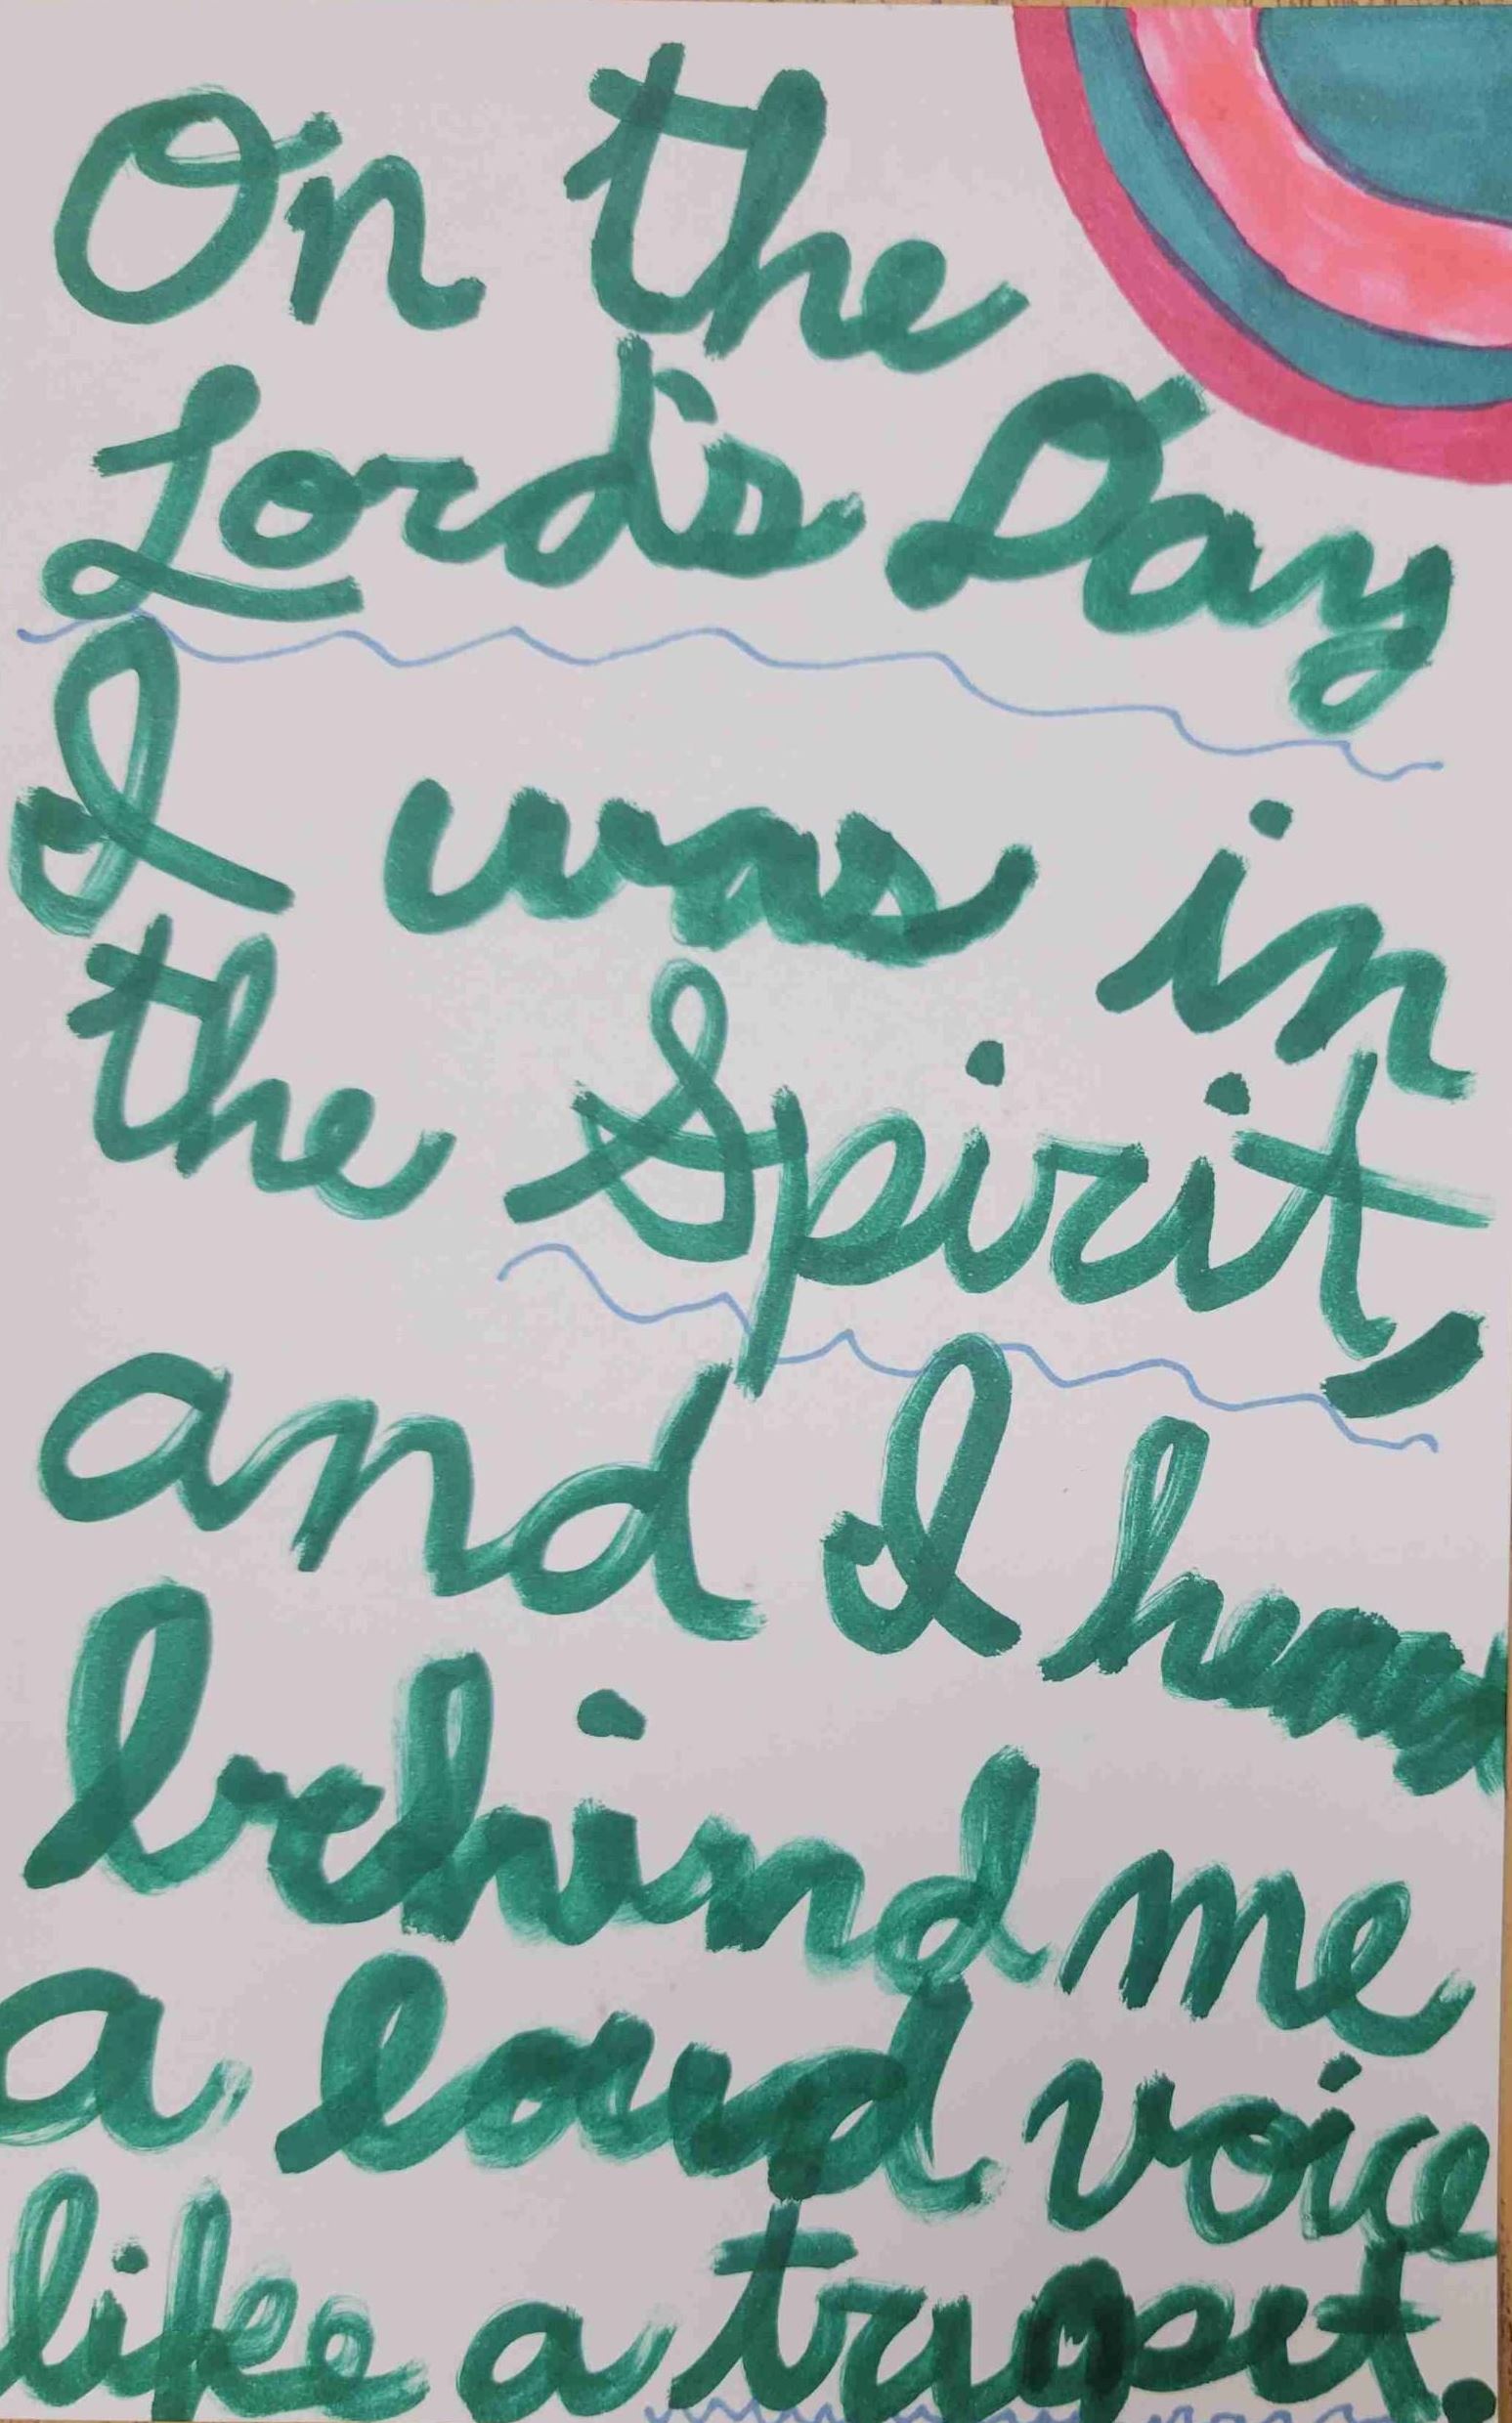 On the
Lord's Day
I was in
the Spirit,
and I heard
behind me
a loud voice
like a